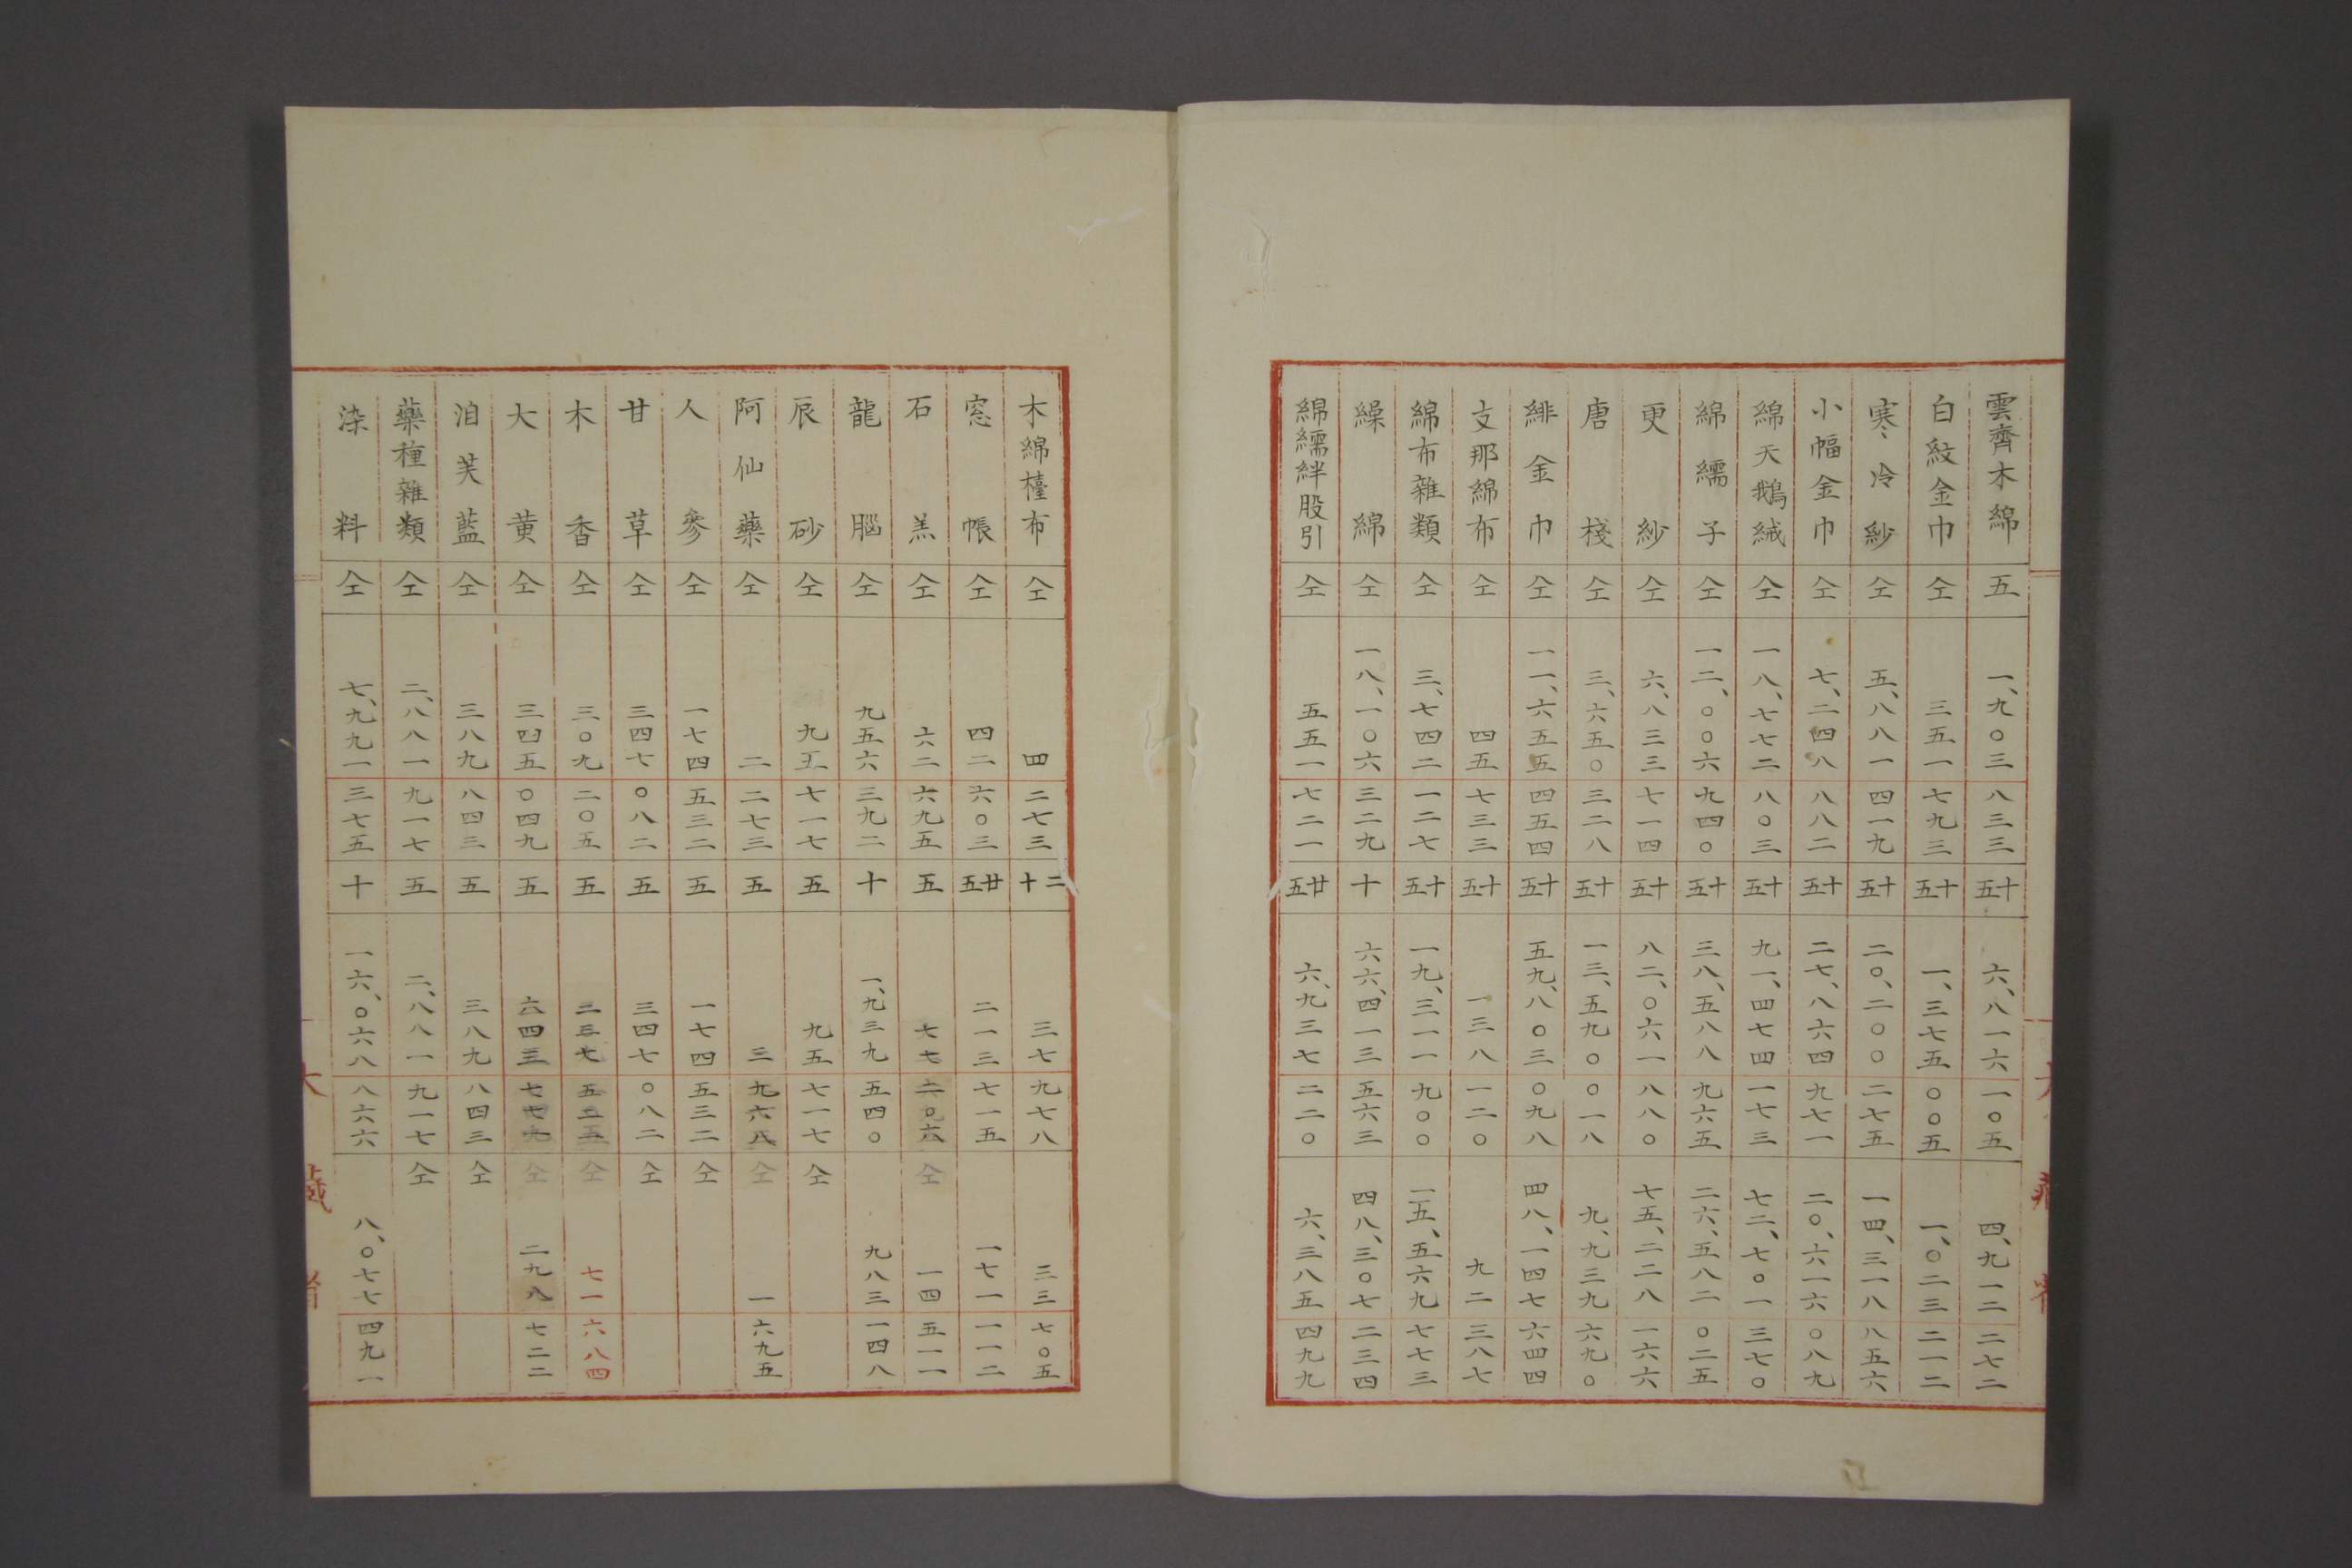 雲齊木綿 五 一、九〇三 八三三 十五 六、八一六 一〇五 四、九一二 二七二
白紋金巾 仝 三五一 七九三 十五 一、三七五 〇〇五 一、〇二三 二一二
寒冷紗 仝 五、八八一 四一九 十五 二〇、二〇〇 二七五 一四、三一八 八五六
小幅金巾 仝 七、二四八 八八二 十五 二七、八六四 九七一 二〇、六一六 〇八九
綿天鵝絨 仝 一八、七七二 八〇三 十五 九一、四七四 一七三 七二、七〇一 三七〇
綿繻子 仝 一二、〇〇六 九四〇 十五 三八、五八八 九六五 二六、五八二 〇二五
更紗 仝 六、八三三 七一四 十五 八二、〇六一 八八〇 七五、二二八 一六六
唐棧 仝 三、六五〇 三二八 十五 一三、五九〇 〇一八 九、九三九 六九〇
緋金巾 仝 一一、六五五 四五四 十五 五九、八〇三 〇九八 四八、一四七 六四四
支那綿布 仝 四五 七三三 十五 一三八 一二〇 九二 三八七
綿布雜類 仝 三、七四二 一二七 十五 一九、三一一 九〇〇 一五、五六九 七七三
繰綿 仝 一八、一〇六 三二九 十 六六、四一三 五六三 四八、三〇七 二三四
綿繻絆股引 仝 五五一 七二一 廿五 六、九三七 二二〇 六、三八五 四九九
木綿檯布 仝 四 二七三 二十 三七 九七八 三三 七〇五
窓帳 仝 四二 六〇三 廿五 二一三 七一五 一七一 一一二
石羔 仝 六二 六九五 五 七七 二〇六 仝 一四 五一一
龍腦 仝 九五六 三九二 十 一、九三九 五四〇 九八三 一四八
辰砂 仝 九五 七一七 五 九五 七一七 仝
阿仙藥 仝 二 二七三 五 三 九六八 仝 一 六九五
人參 仝 一七四 五三二 五 一七四 五三二 仝
甘草 仝 三四七 〇八二 五 三四七 〇八二 仝
木香 仝 三〇九 二〇五 五 仝 七一 六八四
大黄 仝 三四五 〇四九 五 六四三 七七九 仝 二九八 七二二
泊芙藍 仝 三八九 八四三 五 三八九 八四三 仝
藥種雜類 仝 二、八八一 九一七 五 二、八八一 九一七 仝
染料 仝 七、九九一 三七五 十 一六、〇六八 八六六 八、〇七七 四九一
大藏省